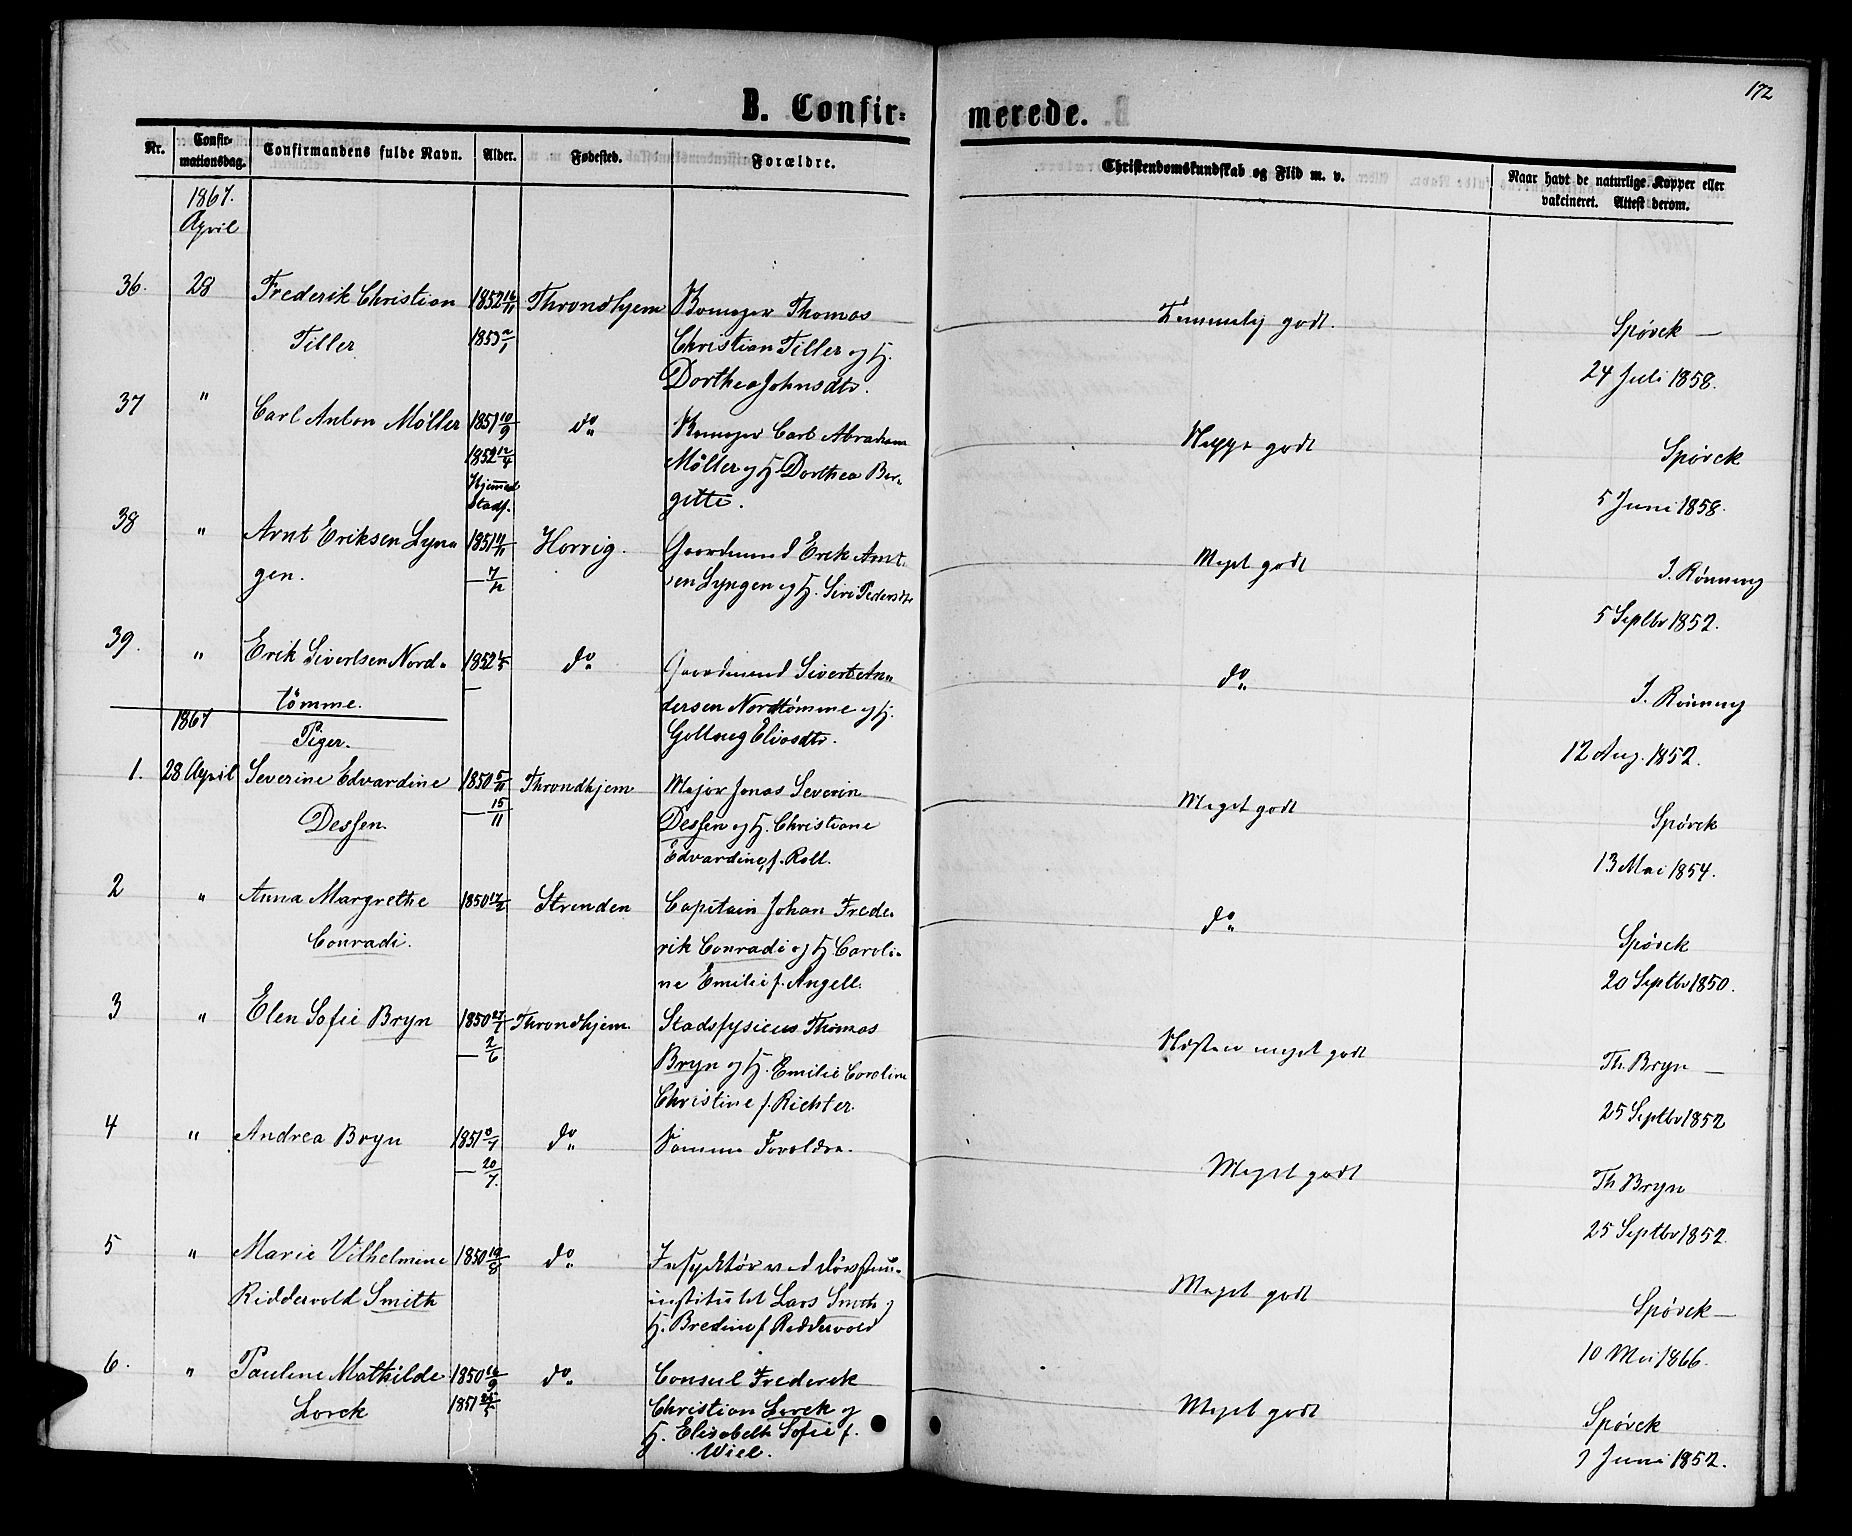 172
B. Confir=
merede.
Nr.
Confir-
mationsdag.
Confirmandens fulde Navn.
Alder.
Fødested.
Forældre.
Christendomskundskab og Flid m. v.
Naar havt de naturlige Kopper eller
vakcineret. Attest derom.
1867.
April
36. 28 Frederik Christian 1852 16/11 Throndhjem Thomas
Tiller 1853 2/1 Christian Tiller og H.
Dorthea Johnsdtr.
Temmelig godt.
Spørck —
24 Juli 1858.
37 " Carl Anton Møller 1851 10/9 do Carl Abraham
1852 12/4 Møller og H. Dorthea Ber-
Hjemmed
Stadf. gitte.
Neppe godt
Spørck
5 Juni 1858.
38 " Arnt Eriksen Lyn- 1851 11/11 Horrig. Gaardmand Erik Arnt-
gen. — 7/12 sen Lyngen og H. Siri Pedersdtr
Meget godt
J. Rønning
5 Septbr 1852.
39. " Erik Sivertsen Nord- 1852 do Gaardmand Sivert An-
tømme. — dersen Nordtømme og H.
Eliasdtr.
do
J. Rønning
12 Aug. 1852.
1867
Piger.
1. 28 April Severine Edvardine 1850 5/11 Throndhjem Major Jonas Severin
Dessen. — 15/11 Dessen og H. Christiane
Edvardine f. Roll.
Meget godt
Spørck
13 Mai 1854.
2 " Anna Margrethe 1850 17/2 Strinden Capitain Johan Frede-
Conradi. rik Conradi og H Caroli-
ne Emilie f. Angell.
do
Spørck
20 Septbr 1850.
3 " Elen Sofie Bryn 1850 Throndhjem. Stadsfysicus Thomas
— 2/6 Bryn og H. Emilie Caroline
Christine f. Richter.
Næsten meget godt
Th. Bryn —
25 Septbr 1852
4 " Andrea Bryn 1851 do Samme Forældre.
— 20/7.
Meget godt
Th Bryn
25 Septbr 1852.
5 " Marie Vilhelmine 1850 19/8 do Inspektør ved Døvstum-
Riddervold Smith institutet Lars Smith og
H. Bredine f. Riddervold
Meget godt
Spørck —
10 Mai 1866.
6. " Pauline Mathilde 1850 16/9 do Consul Frederik
Lorck 1851 Christian Lorck og
H. Elisabeth Sofie f.
Wiel.
Meget godt
Spørck
Juni 1852.